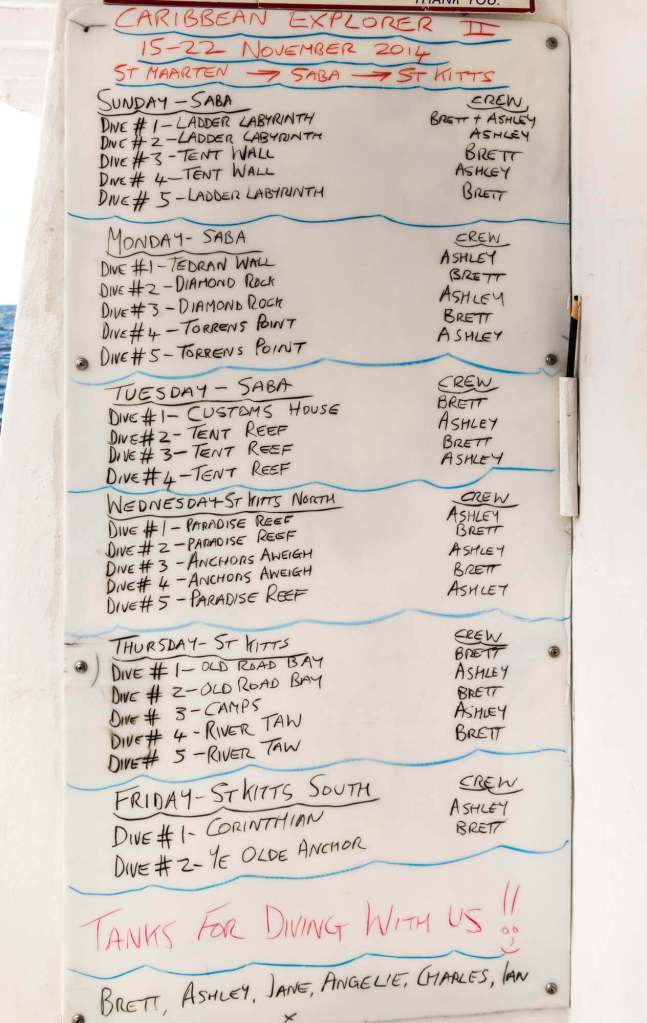 THANK YOU.
CARIBBEAN EXPLORER II
15-22 NOVEMBER 2014
ST MAARTEN → SABA → ST KITTS
SUNDAY - SABA CREW
DIVE # 1 - LADDER LABYRINTH BRETT + ASHLEY
DIVE # 2 - LADDER LABYRINTH ASHLEY
DIVE # 3 - TENT WALL BRETT
DIVE # 4 - TENT WALL ASHLEY
DIVE # 5 - LADDER LABYRINTH BRETT
MONDAY - SABA CREW
DIVE #1 - TEDRAN WALL ASHLEY
DIVE #2 - DIAMOND ROCK BRETT
DIVE #3 - DIAMOND ROCK ASHLEY
DIVE #4 - TORRENS POINT BRETT
DIVE #5 - TORRENS POINT ASHLEY
TUESDAY - SABA CREW
DIVE #1 - CUSTOMS HOUSE BRETT
DIVE #2 - TENT REEF ASHLEY
DIVE #3 - TENT REEF BRETT
DIVE #4 - TENT REEF ASHLEY
WEDNESDAY - ST KITTS NORTH CREW
DIVE #1 - PARADISE REEF ASHLEY
DIVE #2 - PARADISE REEF BRETT
DIVE #3 - ANCHORS AWEIGH ASHLEY
DIVE #4 - ANCHORS AWEIGH BRETT
DIVE #5 - PARADISE REEF ASHLEY
THURSDAY - ST KITTS CREW
DIVE # 1 - OLD ROAD BAY BRETT
DIVE # 2 - OLD ROAD BAY ASHLEY
DIVE # 3 - CAMPS BRETT
DIVE # 4 - RIVER TAW ASHLEY
DIVE # 5 - RIVER TAW BRETT
FRIDAY - ST KITTS SOUTH CREW
DIVE # 1 - CORINTHIAN ASHLEY
DIVE # 2 - YE OLDE ANCHOR BRETT
TANKS FOR DIVING WITH US !!
BRETT, ASHLEY, JANE, ANGELIE, CHARLES, IAN
X